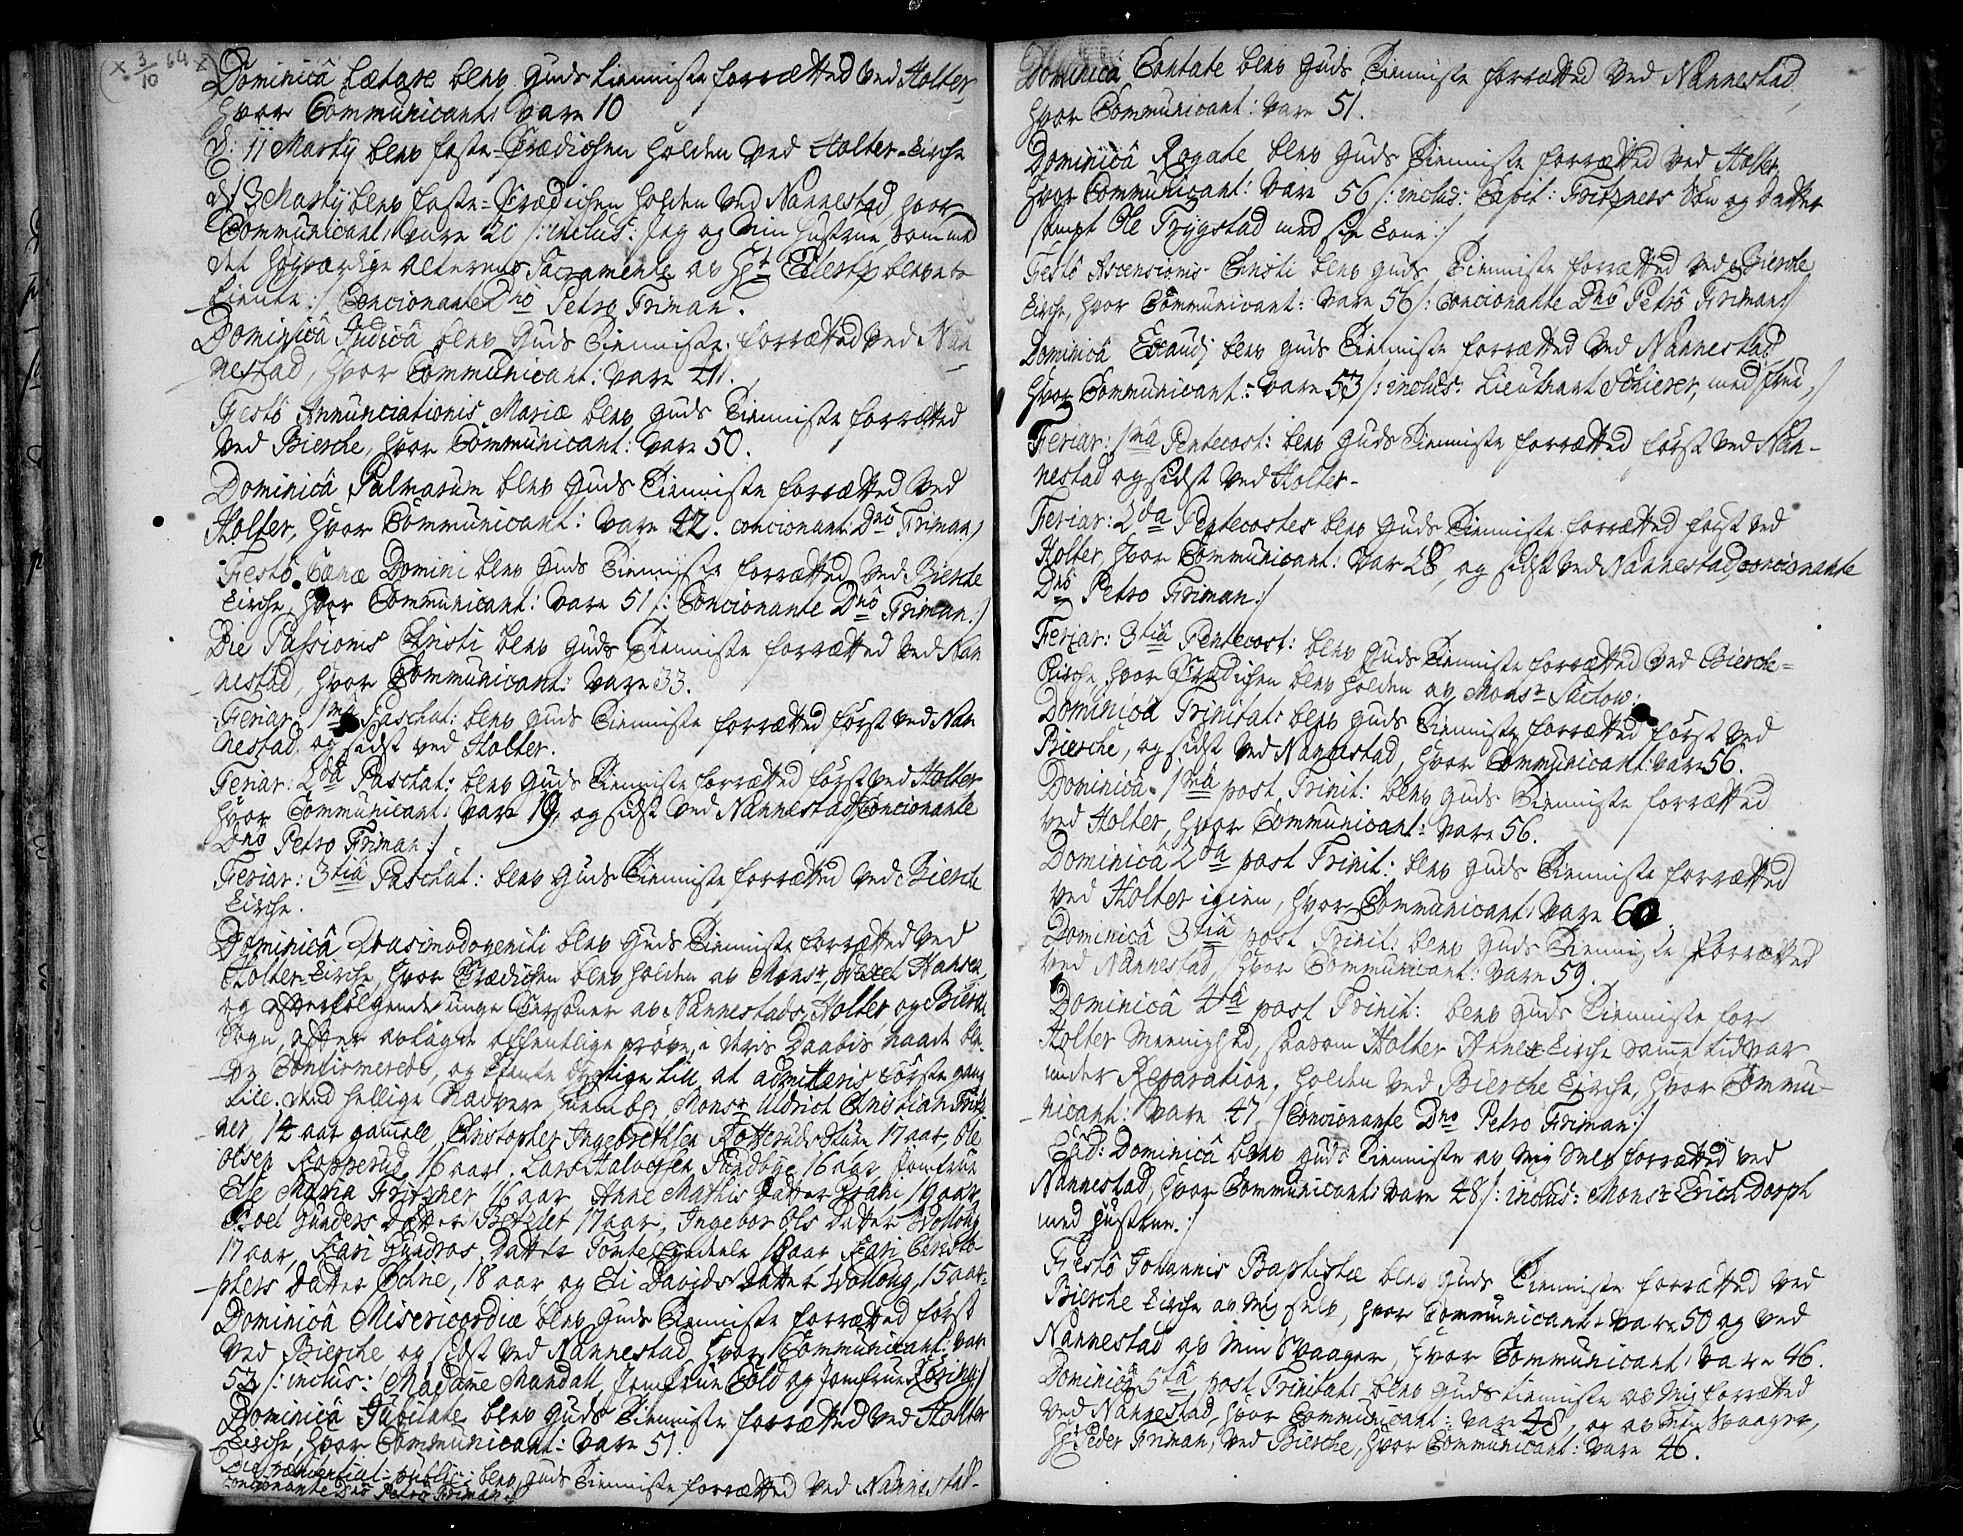 (x 3/10 64 z
Dominicâ Lætare blev Guds Tienniste forrætted ved Holter,
hvor Communicant: vare 10
d: 11 Martij blev faste-Prædichen holden ved Holter-Kirche
d 13 Martij blev faste-Prædichen holden ved Nannestad, hvor
Communicant: vare 20 /: inclus: Jeg og Min Hustrue, som med
det høyværdige alterens Sacramente av Hr blev be-
tiente:/ Concionante Dno Petro Friman.
Dominicâ Judicâ blev Guds Tienniste forrætted ved Nan
nestad, hvor Communicant: vare 41.
Festô Annunciationis Mariæ blev Guds Tienniste forrætted
ved Biercke, hvor Communicant: vare 50.
Dominicâ Palmarum blev Guds Tienniste forrætted ved
Holter, hvor Communicant: vare 42. concionant: Dno Friman:/
Festô Cœnæ Domini blev Guds Tienniste forrætted ved Biercke
Kirche, hvor Communicant: vare 51 /: Concionante Dnô Friman:/
Die Passionis Christi blev Guds Tienniste forrætted ved Nan
nestad, hvor Communicant: vare 33.
Feriar: 1mâ Paschat: blev Guds Tienniste forrætted først ved Nan
nestad og sidst ved Holter.
Feriar: 2dâ Paschat: blev Guds Tienniste forrætted først ved Holter
hvor Communicant: vare 19, og sidst ved Nannestad /: Concionante
Dno Petro Friman:/
Feriar: 3tiâ Paschat: blev Guds Tienniste forrætted ved Bierck
Kirche.
Dominicâ Quasimodogeniti blev Guds Tienniste forrætted ved
Holter-Kirche, hvor Prædichen blev holden av Monsr. Hansen,
og efterfølgende unge Personer av Nannestads, Holter og Bierche
Sogn, efter avlagde offentlige prøve, i deres Daabis Naade ble-
ve Confirmerede, og kiente dygtige till, at admitteris første gang
till: det hellige Nadvere, nemblig, Monsr. Uldrich Christian Fritz
ner, 14 aar gammell, Christopher Ingebrethsen Rotteruds 17 aar, Ole
Olsen Kopperud 16 aar, Lars Halvorsen Sundbye 16 aar, Jomfrue
Else Maria Fritzner 16 aar, Anne Mathis Datter 19 aar
Roel Gunders Datter 17 aar, Ingebor Ols Datter Wollong
17 aar, Kari Gundros Datter 18 aar Kari Christo-
phers Datter 18 aar og Eli Davids Datter Wollong, 15 aar.
Dominicâ Misericordiæ blev Guds Tienniste forrætted først
ved Biercke og sidst ved Nannestad, hvor Communicant: vare
52 /: inclus: Madame Mandall, Jomfrue Cold og Jomfrue:/
Dominicâ Jubilate blev Guds Tienniste forrætted ved Holter
Kirche, hvor Communicant: vare 51.
Die pœnitential: public: blev Guds Tienniste forrætted ved Nannestad-
Concionante Dnô Petrô Friman:/
Dominicâ Cantate blev Guds Tienniste forrætted ved Nannestad,
hvor Communicant: vare 51.
Dominicâ Rogate blev Guds Tienniste forrætted ved Holter,
hvor Communicant: vare 56 /: inclus: Capit: Fritzners Søn og Datter
sampt Ole Trygstad med sin Kone:/
Festô Ascensionis Christi blev Guds Tienniste forrætted ved Biercke
Kirche, hvor Communicant: vare 56 /: Concionante Dnô Petrô Friman:/
Dominicâ Exaudj blev Guds Tienniste forrætted ved Nannestad,
hvor Communicant: vare 53 /: inclus: Lieutnant Schierer, med frue,/
Feriar: 1mâ Pentecost: blev Guds Tienniste forrætted først ved Nan-
nestad og sidst ved Holter-
Feriar: 2da Pentecostes blev Guds Tienniste forrætted først ved
Holter, hvor Communicant: var 28, og sidst ved Nannestad, concionante
Dnô Petro Friman:/
Feriar: 3tiâ Pentecost: blev Guds Tienniste forrætted ved Biercke-
Kirche, hvor Prædichen blev holden av Monsr
Dominicâ Trinitat: blev Guds Tienniste forrætted først ved
Biercke, og sidst ved Nannestad, hvor Communicant: vare 56.
Dominicâ 1mâ post Trinit: blev Guds Tienniste forrætted
ved Holter, hvor Communicant: vare 56.
Dominicâ 2da post Trinit: blev Guds Tienniste forrætted
ved Holter igien, hvor Communicant: vare 60.
Dominicâ 3tiâ post Trinit: blev Guds Tienniste forrætted
ved Nannestad, hvor Communicant: vare 59.
Dominicâ 4tâ post Trinit: blev Guds Tienniste for
Holter Meenighed, saasom Holter Annex Kirche samme tid var
under Reparation, holden ved Biercke Kirche, hvor Commu-
nicant: vare 47 /: Concionante Dno Petro Friman:/
Ead: Dominicâ blev Guds Tienniste av Mig selv forrætted ved
Nannestad, hvor Communicant: vare 48 /: inclus: Monsr Erich Dorph
med Hustrue.:/
Festô Johannis Baptistæ blev Guds Tienniste forrætted ved
Biercke Kirche av Mig selv, hvor Communicant: vare 50 og ved
Nannestad av Min Svaager, hvor Communicant: vare 46.
Dominicâ 5tâ post Trinitat: blev Guds Tienniste av Mig forrætted
ved Nannestad, hvor Communicant: vare 48, og av Min Svaager,
Hr Peder Friman, ved Biercke, hvor Communicant: vare 46.